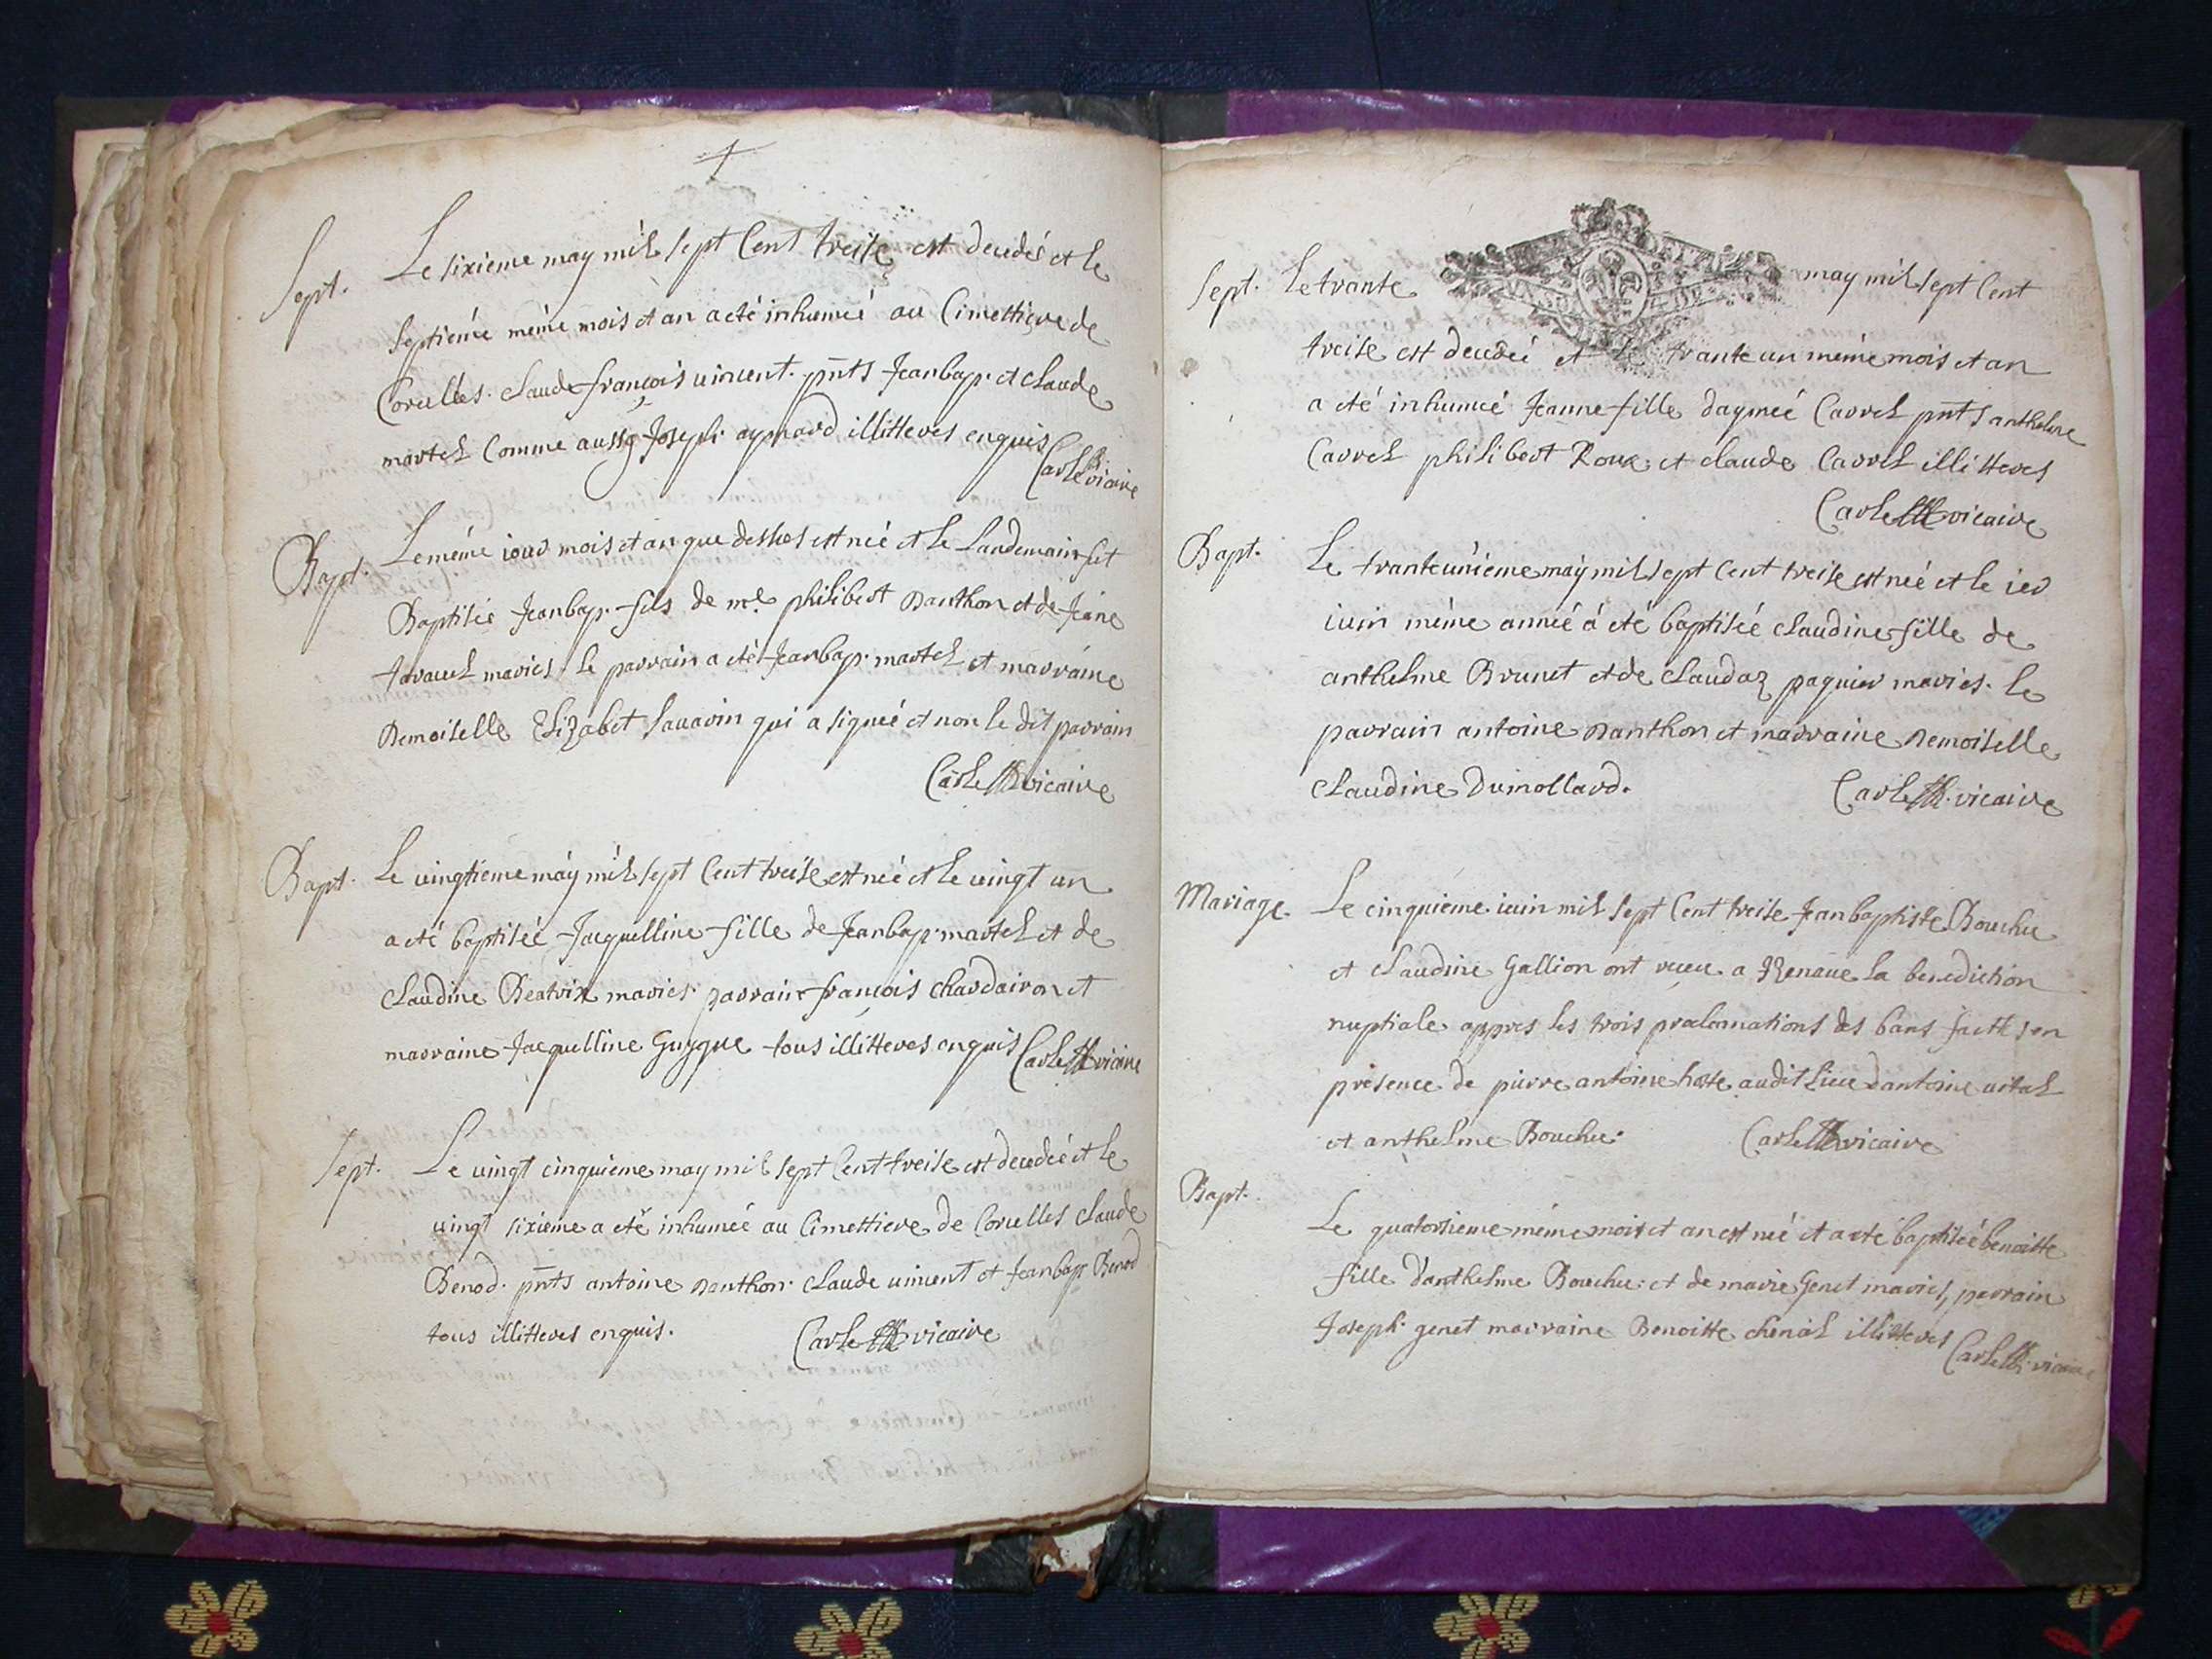 Sept. Le sixieme may mil sept Cent treise est decedé et le
septiéme méme mois et an a eté inhumeé au Cimettiere de
Corcelles. claude françois vincent. pnts Jeanbap. et claude
martel Comme aussy Joseph aymard illitteres enquis
Carle vicaire
Bapt. Le méme iour mois et an que dessus est neé et le Landemain fut
Baptiseé Jeanbap. fils de me philibert Danthon et de Jeane
travail mariés. le parrain a eté Jeanbap. martel et marraine
Demoiselle Elizabet Savarin qui a signeé et non le dit parrain
Carle vicaire
Bapt. Le vingtieme may mil sept Cent treise est neé et le vingt un
a eté baptiseé Jacquelline fille de Jeanbap. martel et de
claudine Beatrix mariés. parrain françois chardairon et
marraine Jacquelline Guygue tous illitteres enquis Carle vicaire
Sept. Le vingt cinquieme may mil sept Cent treise est decedeé et le
vingt sixieme a eté inhumeé au Cimettiere de Corcelles claude
Benod. pnts antoine Danthon. claude vincent et Jeanbap Benod
tous illitteres enquis. Carle vicaire
Sept. Le trante may mil sept Cent
treise est decedeé et le trante un méme mois et an
a eté inhumeé Jeanne fille daymeé Carrel pnts anthelme
Carrel philibert Roux et claude Carrel illitteres
Carle vicaire
Bapt. Le tranteuniéme may mil sept Cent treise est neé et le ier
iuin méme anneé a eté baptiseé claudine fille de
anthelme Brunet et de claudaz paquier mariés. le
parrain antoine Danthon et marraine Demoiselle
claudine Dumollard. Carle vicaire
Mariage. Le cinquieme iuin mil sept Cent treise Jean baptiste Bouchu
et claudine Gallion ont receu a la benediction
nuptiale appres les trois proclamations des bans en
presence de pierre antoine hoste audit lieu dantoine vital
et anthelme Bouchu. Carle vicaire
Bapt.
Le quatorsieme méme mois et an est neé et a eté baptiseé benoitte
fille d'anthelme Bouchu et de marie Genet mariés, parrain
Joseph genet marraine Benoitte chenal illitteres Carle vicaire